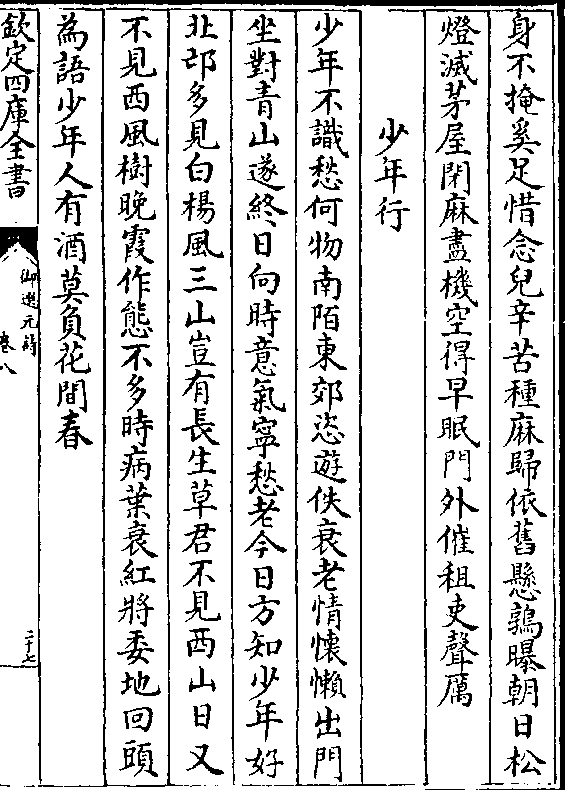 身不掩奚足惜念兒辛苦種麻歸依舊懸鶉曝朝日松
燈滅茅屋閉麻盡機空得早眠門外催租吏聲厲
少年行
少年不識愁何物南陌東郊恣遊佚衰老情懷懶出門
坐對青山遂終日向時意氣寧愁老今日方知少年好
北邙多見白楊風三山豈有長生草君不見西山日又
不見西風樹晚霞作態不多時病葉衰紅將委地回頭
為語少年人有酒莫負花間春
欽定四庫全書
御選元詩
卷八
二十七